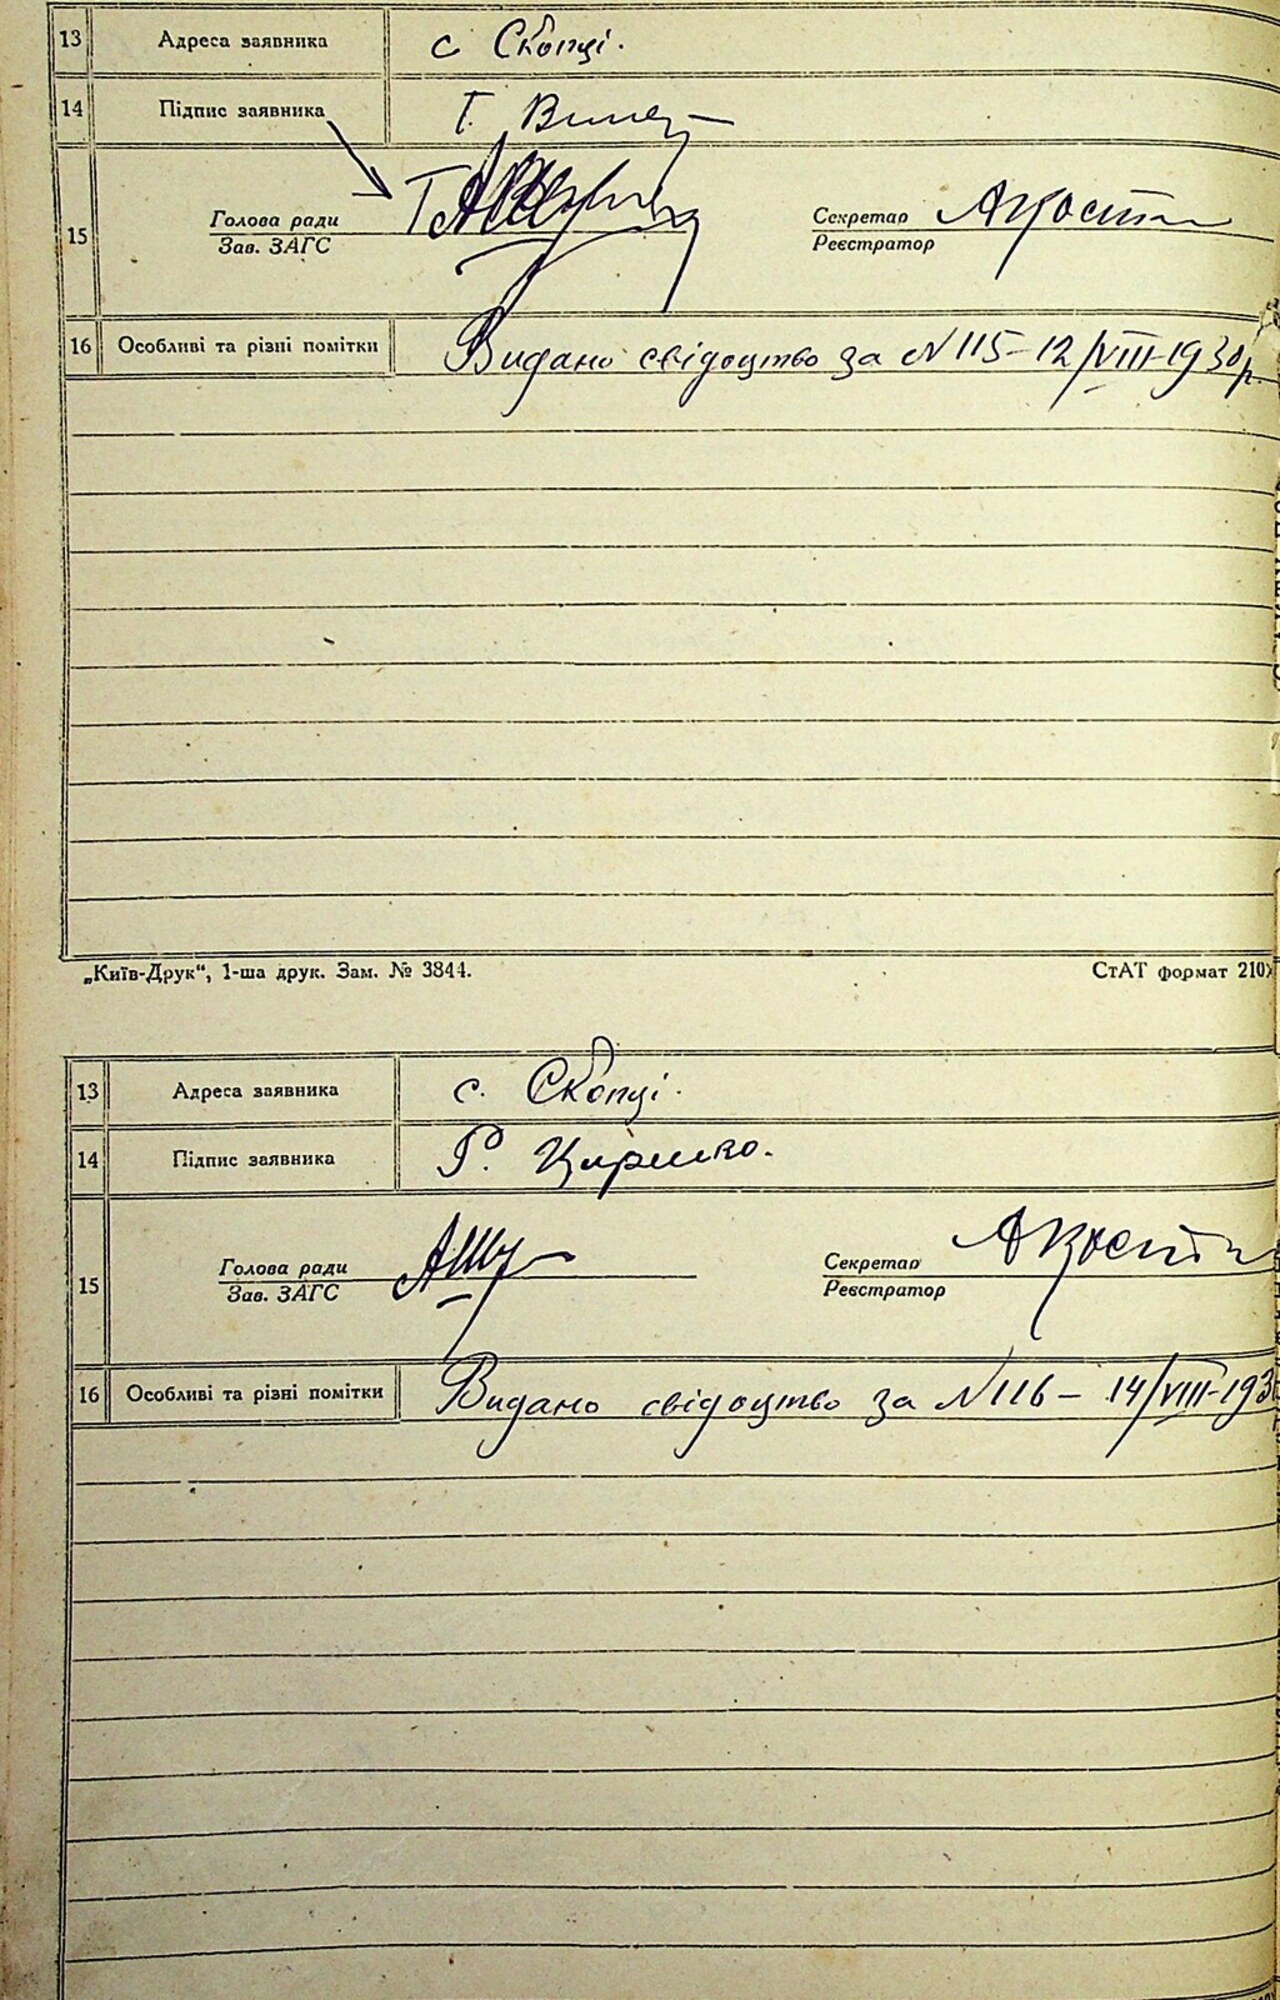 13 Адреса заявника с Скопці.
14 Підпис заявника Т.
15 Голова ради Секретар
Зав. ЗАГС Реєстратор
16 Особливі та різні помітки Видано свідоцтво за N 115 - 12/VIII-1930р.
„Київ-Друк“, 1-ша друк. Зам. № 3844. СтАТ формат 210
13 Адреса заявника с. Скопці.
14 Підпис заявника Р.
15 Голова ради Секретар
Зав. ЗАГС Реєстратор
16 Особливі та різні помітки Видано свідоцтво за N 116 - 14/VIII-193